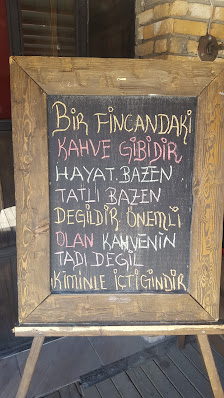 BİR FİNCANDAKİ
KAHVE GİBİDİR
HAYAT. BAZEN
TATLI BAZEN
DEĞİLDİR ÖNEMLİ
OLAN KAHVENİN
TADI DEĞİL
KİMİNLE İÇTİĞİNDİR